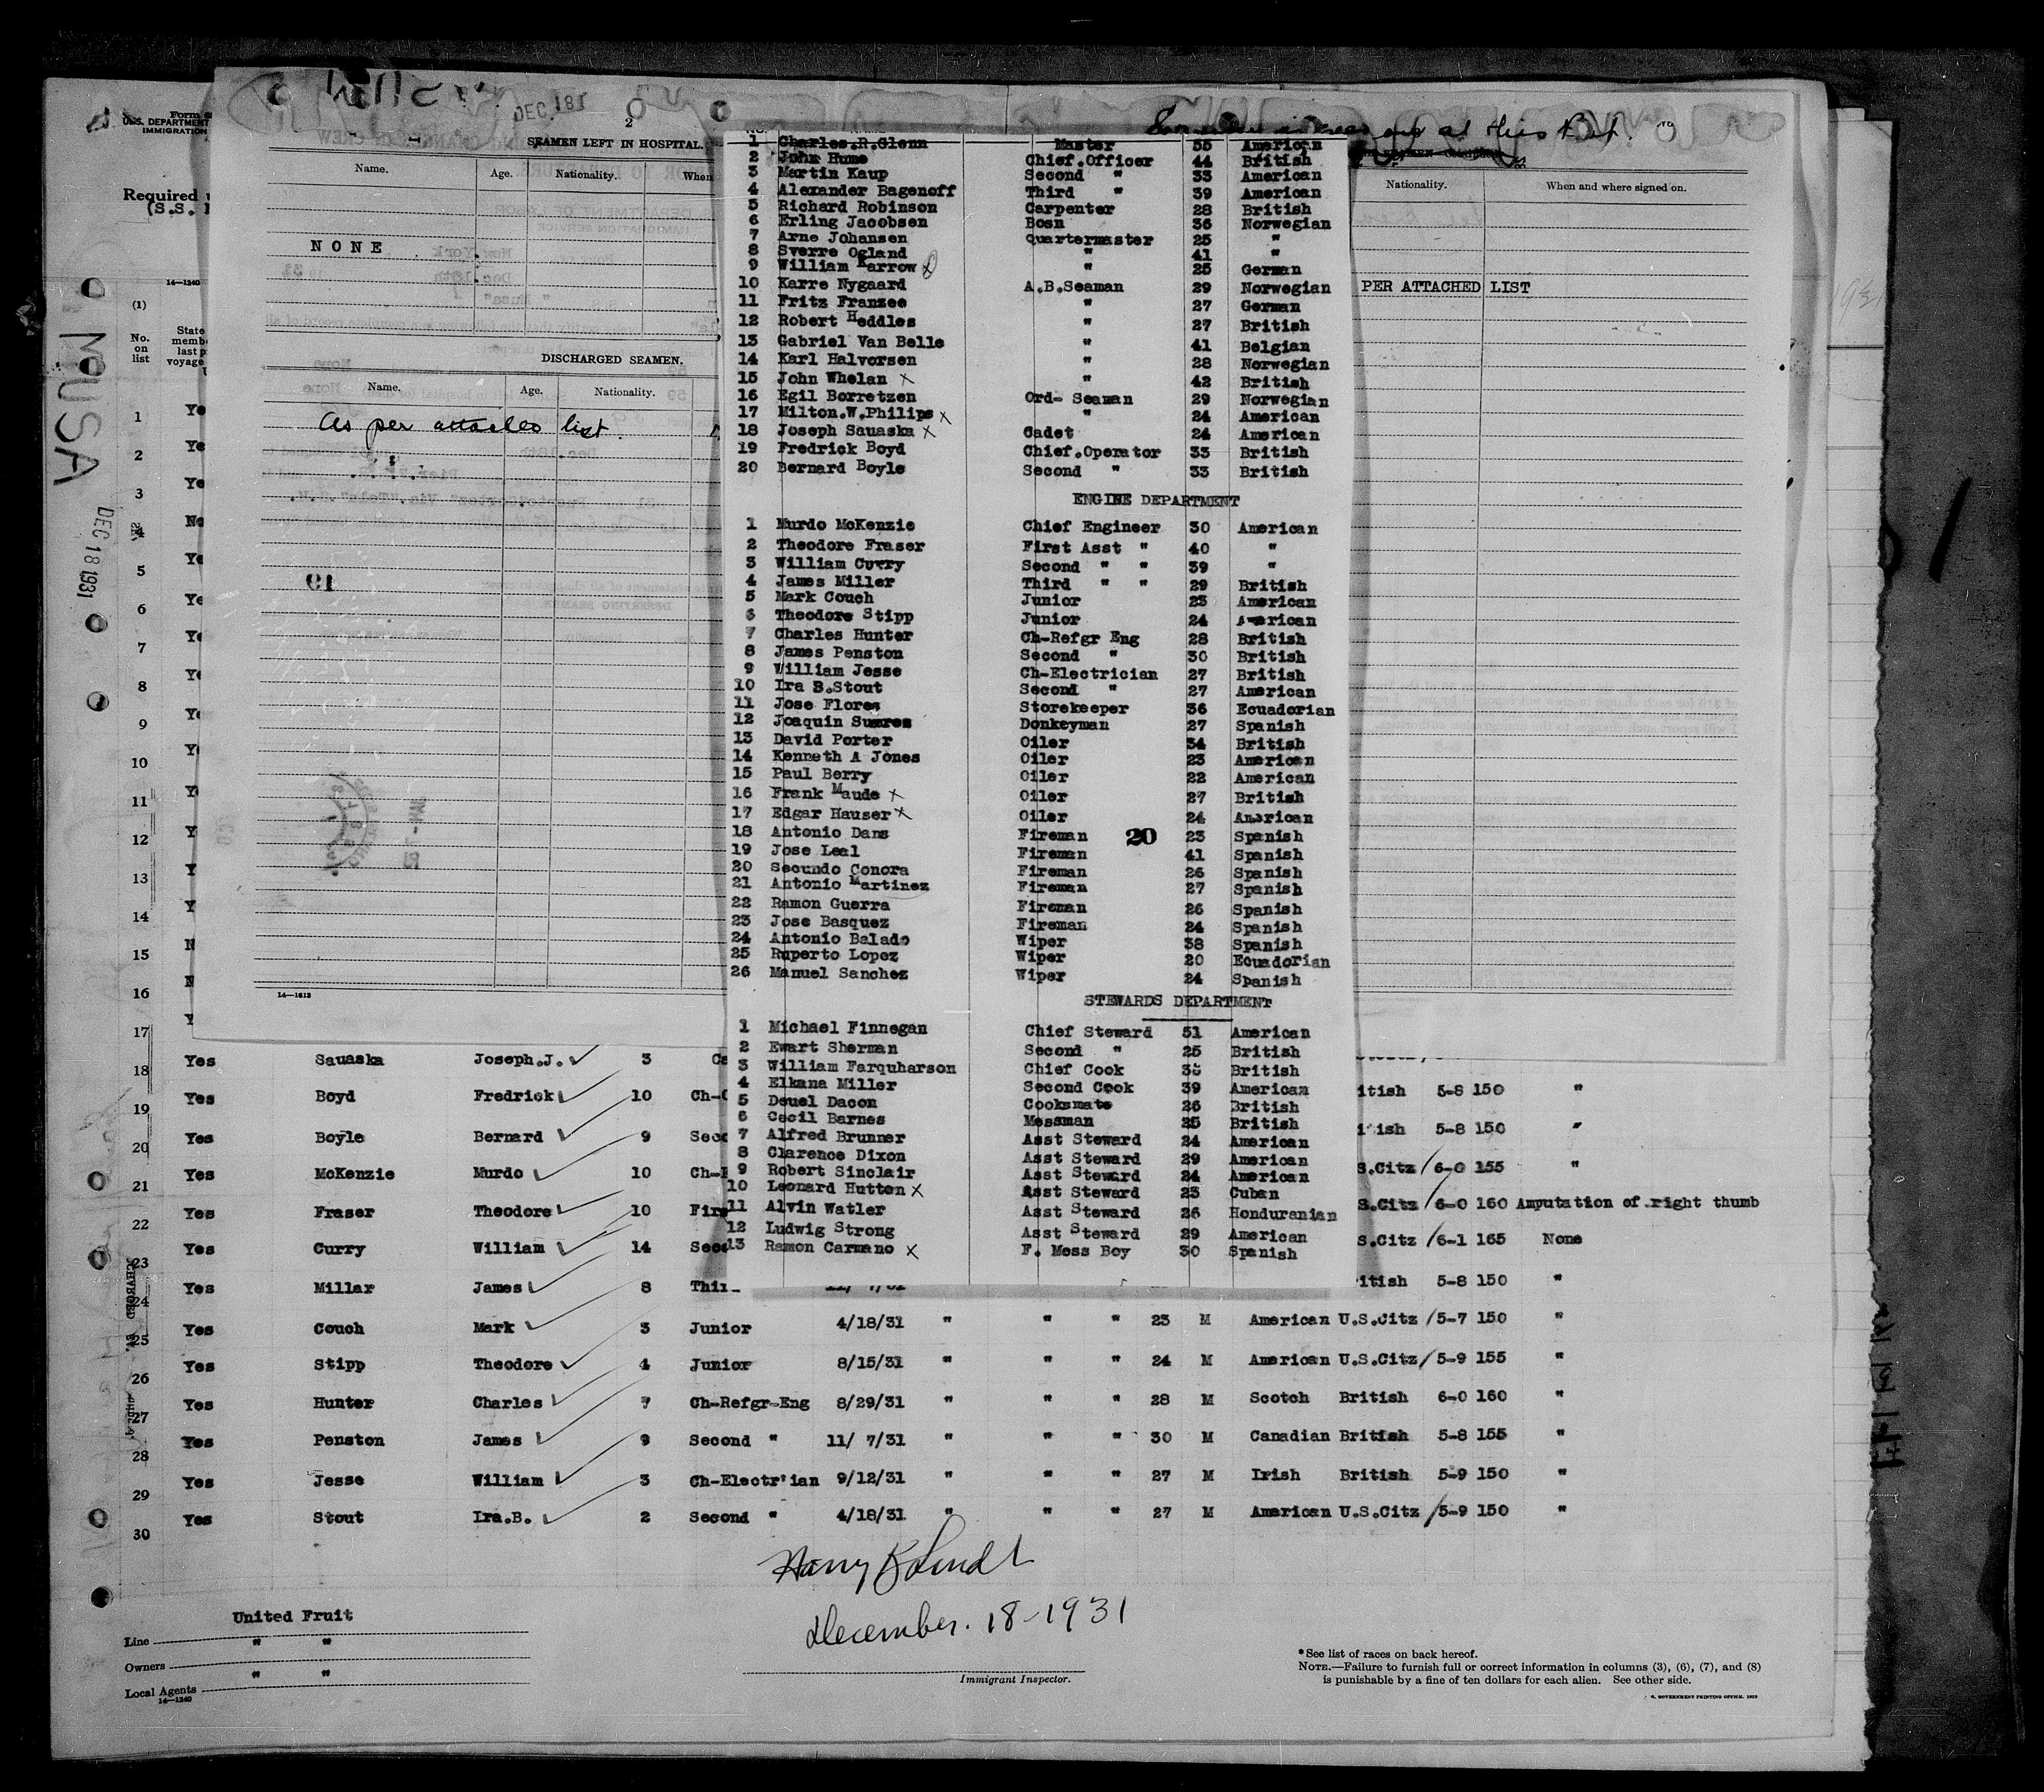 Form
U.S. DEPARTMENT
IMMIGRATION
Required
(S.S.
14—1240
(1)
No. on list
State
memb
last p
voyage
MUSA
DEC 18 1931
DEC 18 1
2
SEAMEN LEFT IN HOSPITAL.
Name. Age. Nationality. When
NONE
DISCHARGED SEAMEN.
Name. Age. Nationality.
As per attached list.
19
14—1613
at this Port.
Nationality. When and where signed on.
PER ATTACHED LIST
1 Charles.R.Glenn Master 55 American
2 John Hume Chief.Officer 44 British
3 Martin Kaup Second " 33 American
4 Alexander Bagenoff Third " 39 American
5 Richard Robinson Carpenter 28 British
6 Erling Jacobsen Bosn 36 Norwegian
7 Arne Johansen Quartermaster 25 "
8 Sverre Ogland " 41 "
9 William Karrow x " 25 German
10 Karre Nygaard A.B.Seaman 29 Norwegian
11 Fritz Franzee " 27 German
12 Robert Heddles " 27 British
13 Gabriel Van Belle " 41 Belgian
14 Karl Halvorsen " 28 Norwegian
15 John Whelan x " 42 British
16 Egil Borretzen Ord- Seaman 29 Norwegian
17 Milton.W.Philips x " 24 American
18 Joseph Sauaska x Cadet 24 American
19 Fredrick Boyd Chief.Operator 33 British
20 Bernard Boyle Second " 33 British
ENGINE DEPARTMENT
1 Murdo McKenzie Chief Engineer 30 American
2 Theodore Fraser First Asst " 40 "
3 William Curry Second " " 39 "
4 James Miller Third " " 29 British
5 Mark Couch Junior 23 American
6 Theodore Stipp Junior 24 American
7 Charles Hunter Ch-Refgr Eng 28 British
8 James Penston Second " 30 British
9 William Jesse Ch-Electrician 27 British
10 Ira B.Stout Second " 27 American
11 Jose Flores Storekeeper 36 Ecuadorian
12 Joaquin Suares Donkeyman 27 Spanish
13 David Porter Oiler 34 British
14 Kenneth A Jones Oiler 23 American
15 Paul Berry Oiler 22 American
16 Frank Maude x Oiler 27 British
17 Edgar Hauser x Oiler 24 American
18 Antonio Dans Fireman 20 23 Spanish
19 Jose Leal Fireman 41 Spanish
20 Secundo Conora Fireman 26 Spanish
21 Antonio Martinez Fireman 27 Spanish
22 Ramon Guerra Fireman 26 Spanish
23 Jose Basquez Fireman 24 Spanish
24 Antonio Balado Wiper 38 Spanish
25 Ruperto Lopez Wiper 20 Ecuadorian
26 Manuel Sanchez Wiper 24 Spanish
STEWARDS DEPARTMENT
1 Michael Finnegan Chief Steward 51 American
2 Ewart Sherman Second " 25 British
3 William Farquharson Chief Cook 35 British
4 Elkana Miller Second Cook 39 American
5 Deuel Dacon Cooksmate 26 British
6 Cecil Barnes Messman 25 British
7 Alfred Brunner Asst Steward 24 American
8 Clarence Dixon Asst Steward 29 American
9 Robert Sinclair Asst Steward 24 American
10 Leonard Hutton x Asst Steward 23 Cuban
11 Alvin Watler Asst Steward 26 Honduranian
12 Ludwig Strong Asst Steward 29 American
13 Ramon Carmano x F. Mess Boy 30 Spanish
1
2
3
4
5
6
7
8
9
10
11
12
13
14
15
16
17
18 Yes Sauaska Joseph.J. 3
19 Yes Boyd Fredrick 10 itish 5-8 150 "
20 Yes Boyle Bernard 9 5-8 150 "
21 Yes McKenzie Murdo 10 S.Citz 6-0 155 "
22 Yes Fraser Theodore 10 S.Citz 6-0 160 Amputation of right thumb
23 Yes Curry William 14 S.Citz 6-1 165 None
24 Yes Millar James 8 itish 5-8 150 "
25 Yes Couch Mark 3 Junior 4/18/31 " " " 23 M American U.S.Citz 5-7 150 "
26 Yes Stipp Theodore 4 Junior 8/15/31 " " " 24 M American U.S.Citz 5-9 155 "
27 Yes Hunter Charles 7 Ch-Refgr-Eng 8/29/31 " " " 28 M Scotch British 6-0 160 "
28 Yes Penston James 9 Second " 11/ 7/31 " " " 30 M Canadian British 5-8 155 "
29 Yes Jesse William 3 Ch-Electr'ian 9/12/31 " " " 27 M Irish British 5-9 150 "
30 Yes Stout Ira.B. 2 Second " 4/18/31 " " " 27 M American U.S.Citz 5-9 150 "
December. 18-1931
Immigrant Inspector.
United Fruit
Line " "
Owners " "
Local Agents
14—1240
*See list of races on back hereof.
NOTE.—Failure to furnish full or correct information in columns (3), (6), (7), and (8)
is punishable by a fine of ten dollars for each alien. See other side.
GOVERNMENT PRINTING OFFICE